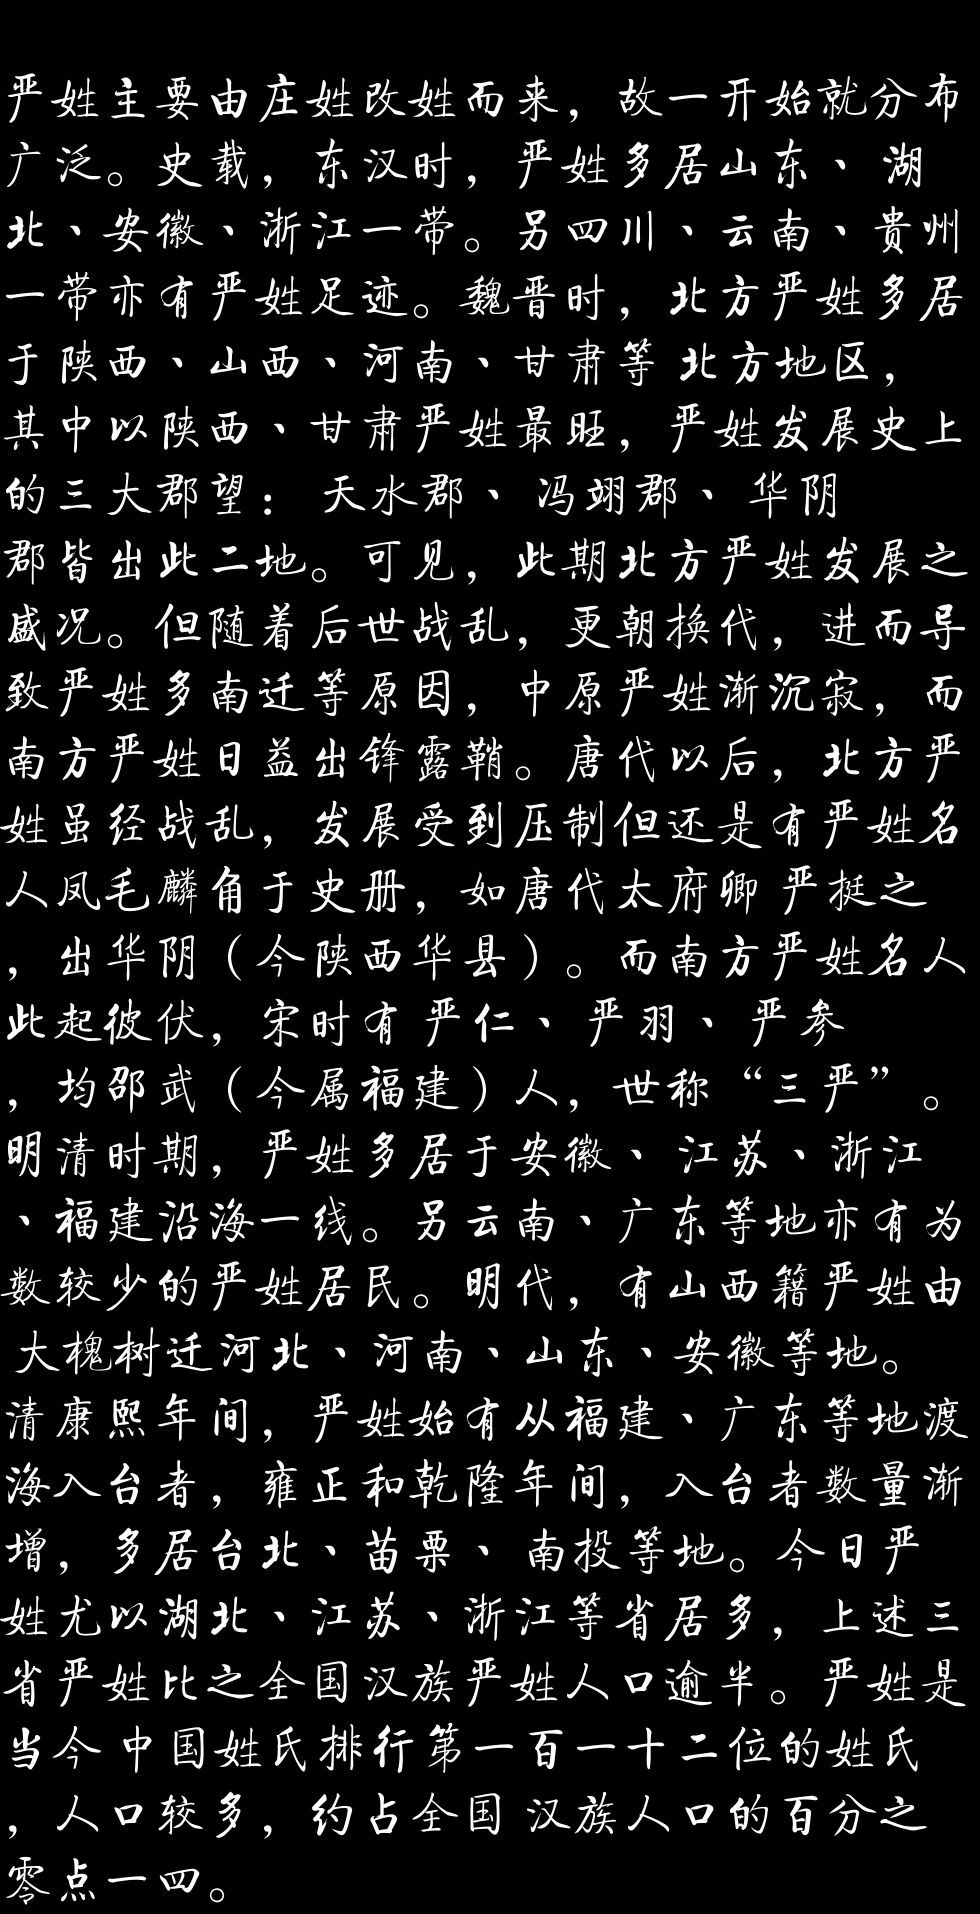 严姓主要由庄姓改姓而来，故一开始就分布
广泛。史载，东汉时，严姓多居山东、湖
北、安徽、浙江一带。另四川、云南、贵州
一带亦有严姓足迹。魏晋时，北方严姓多居
于陕西、山西、河南、甘肃等北方地区，
其中以陕西、甘肃严姓最旺，严姓发展史上
的三大郡望：天水郡、冯翊郡、华阴
郡皆出此二地。可见，此期北方严姓发展之
盛况。但随着后世战乱，更朝换代，进而导
致严姓多南迁等原因，中原严姓渐沉寂，而
南方严姓日益出锋露鞘。唐代以后，北方严
姓虽经战乱，发展受到压制但还是有严姓名
人凤毛麟角于史册，如唐代太府卿严挺之
，出华阴（今陕西华县）。而南方严姓名人
此起彼伏，宋时有严仁、严羽、严参
，均邵武（今属福建）人，世称“三严”。
明清时期，严姓多居于安徽、江苏、浙江
、福建沿海一线。另云南、广东等地亦有为
数较少的严姓居民。明代，有山西籍严姓由
大槐树迁河北、河南、山东、安徽等地。
清康熙年间，严姓始有从福建、广东等地渡
海入台者，雍正和乾隆年间，入台者数量渐
增，多居台北、苗栗、南投等地。今日严
姓尤以湖北、江苏、浙江等省居多，上述三
省严姓比之全国汉族严姓人口逾半。严姓是
当今中国姓氏排行第一百一十二位的姓氏
，人口较多，约占全国汉族人口的百分之
零点一四。